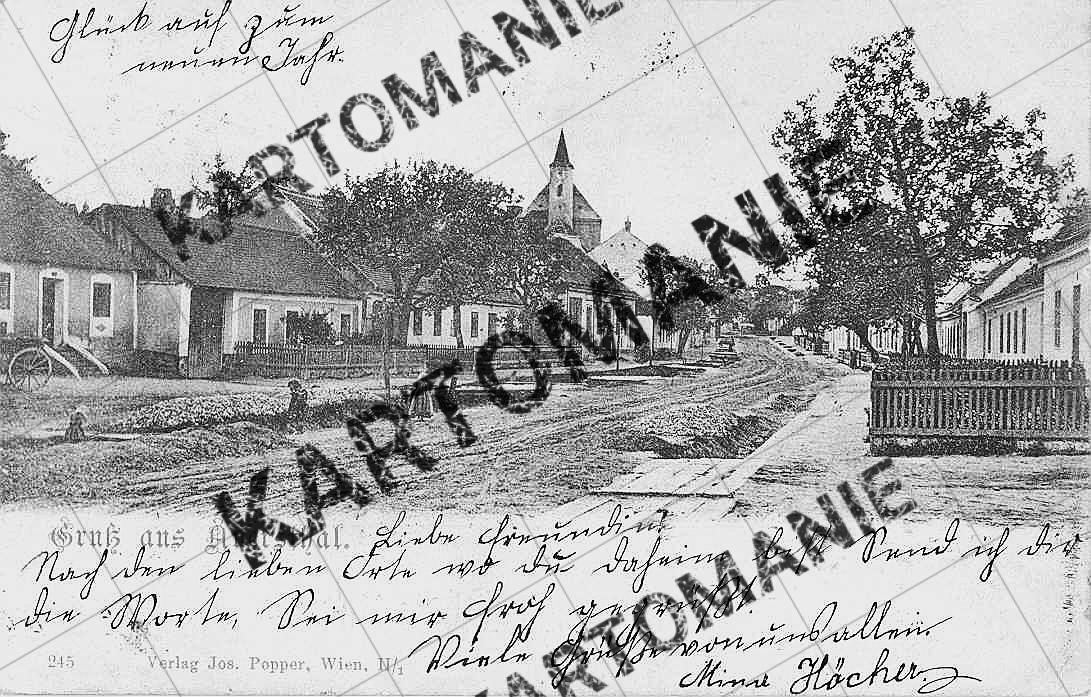 Glück auf zum
neuen Jahr.
KARTOMANIE KARTOMANIE
KARTOMANIE KARTOMANIE
KARTOMANIE
Gruß aus
Liebe Freundin!
Nach den lieben Orte wo du daheim bist Send ich dir
die Worte, Sei mir froh gegrüßt.
Viele Grüße von uns allen.
245 Verlag Jos. Popper, Wien, II/1
Mina Höcher